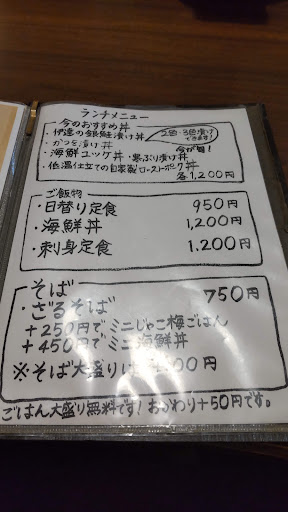 ランチメニュー
・今のおすすめ丼
・伊達の銀鮭漬け丼
2色・3色漬け
できます!
・かつを漬け丼
今が旬!
・海鮮ユッケ丼・寒ぶり漬け丼
・低温仕立ての自家製ローストポーク丼
各1,200円
ご飯物
・日替り定食 950円
・海鮮丼 1,200円
・刺身定食 1.200円
そば
・ざるそば 750円
+250円でミニじゃこ梅ごはん
+450円でミニ海鮮丼
※そば大盛りは 00円
ごはん大盛り無料です!おかわり+50円です。